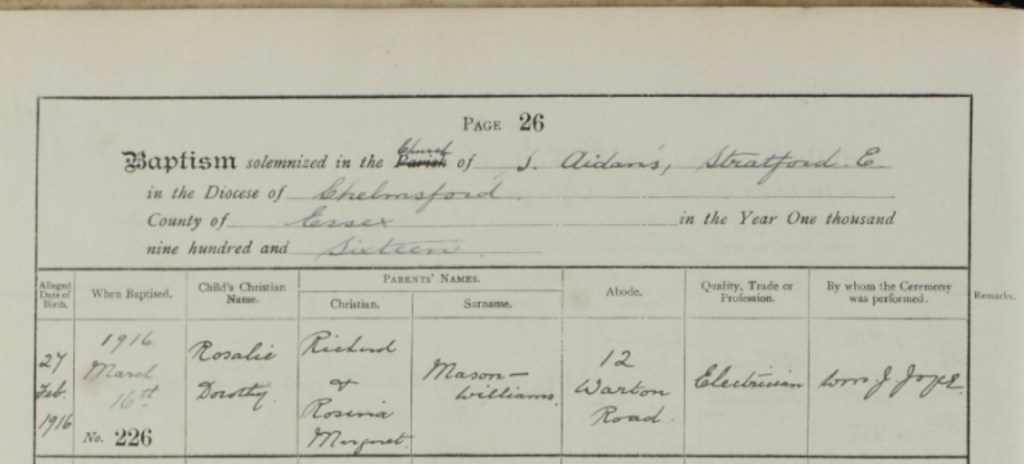 PAGE 26
Baptism solemnized in the Church Parish of S. Aidan's, Stratford. E.
in the Diocese of Chelmsford.
County of Essex in the Year One thousand
nine hundred and Sixteen
Alleged Date of Birth.
When Baptised.
Child's Christian Name.
PARENTS' NAMES.
Christian.
Surname.
Abode.
Quality, Trade or Profession.
By whom the Ceremony was performed.
Remarks.
27
Feb.
1916
1916
March
16th
No. 226
Rosalie
Dorothy
Richard
&
Rosina
Margaret
Mason-
Williams.
12
Warton
Road.
Electrician
Wm J